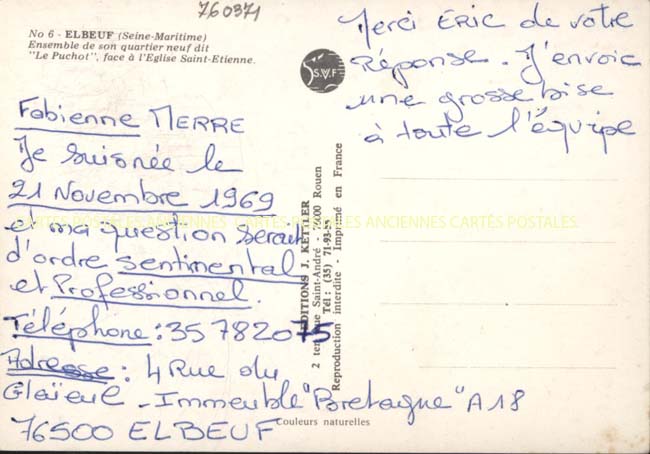 760371
No 6 - ELBEUF (Seine-Maritime)
Ensemble de son quartier neuf dit
"Le Puchot", face à l'Eglise Saint-Etienne.
S.V.F
Merci ERIC de votre
Réponse. J'envoie
une grosse bise
à toute l'équipe
Fabienne MERRE
Je suis née le
21 Novembre 1969
et ma question serait
d'ordre sentimental
et Professionnel.
Téléphone : 35 78 20 75
Adresse : 4 Rue du
Glaïeul - Immeuble "Bretagne" A18
76500 ELBEUF
EDITIONS J. KETTLER
2 ter, rue Saint-André - 76000 Rouen
Tél : (35) 71-93-55
Reproduction interdite - Imprimé en France
CARTES POSTALES ANCIENNES CARTES POSTALES ANCIENNES CARTES POSTALES
Couleurs naturelles